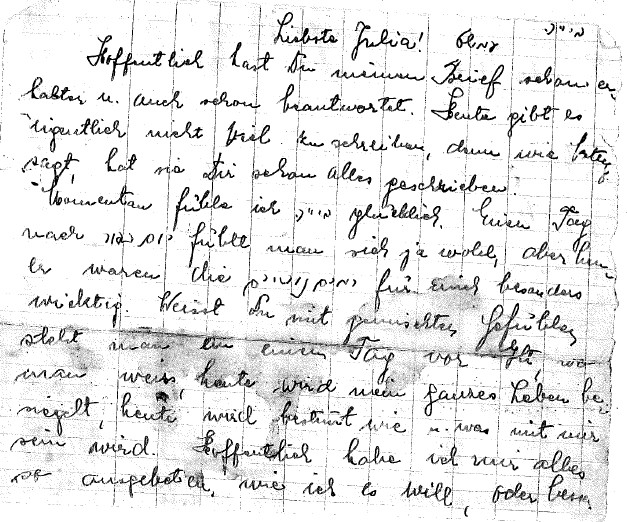 Liebste Julia!
Hoffentlich hast Du meinen Brief schon er-
halten u. auch schon beantwortet. Heute gibt es
eigentlich nicht viel zu schreiben, denn wie
sagt, hat sie Dir schon alles geschrieben.
Momentan fühle ich glücklich. Einen Tag
nach יום כפור fühlt man sich ja wohl, aber heu-
er waren die ימים נוראים für mich besonders
wichtig. Weisst Du mit gemischten Gefühlen
steht man an einem Tag vor Gtt, wo
man weiss, heute wird mein ganzes Leben be-
siegelt, heute wird bestimt wie u. was mit mir
sein wird. Hoffentlich habe ich mir alles
so ausgebeten, wie ich es will, oder